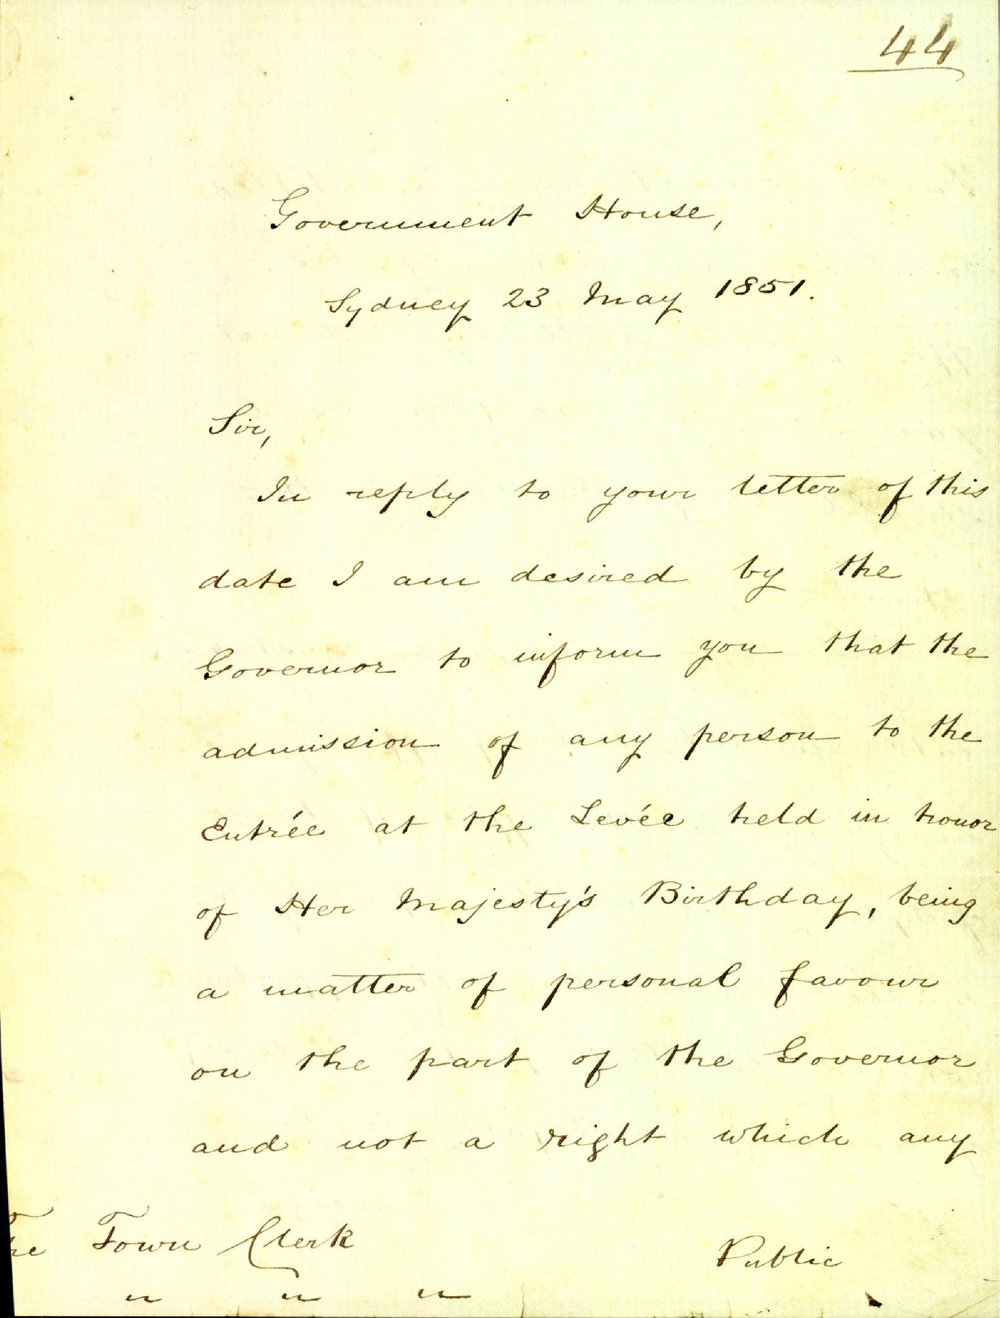 44
Government House,
Sydney 23 May 1851.
Sir,
In reply to your letter of this
date I am desired by the
Governor to inform you that the
admission of any person to the
Entrée at the Levée held in honor
of Her Majesty's Birthday, being
a matter of personal favour
on the part of the Governor
and not a right which any
The Town Clerk
Public
" " "